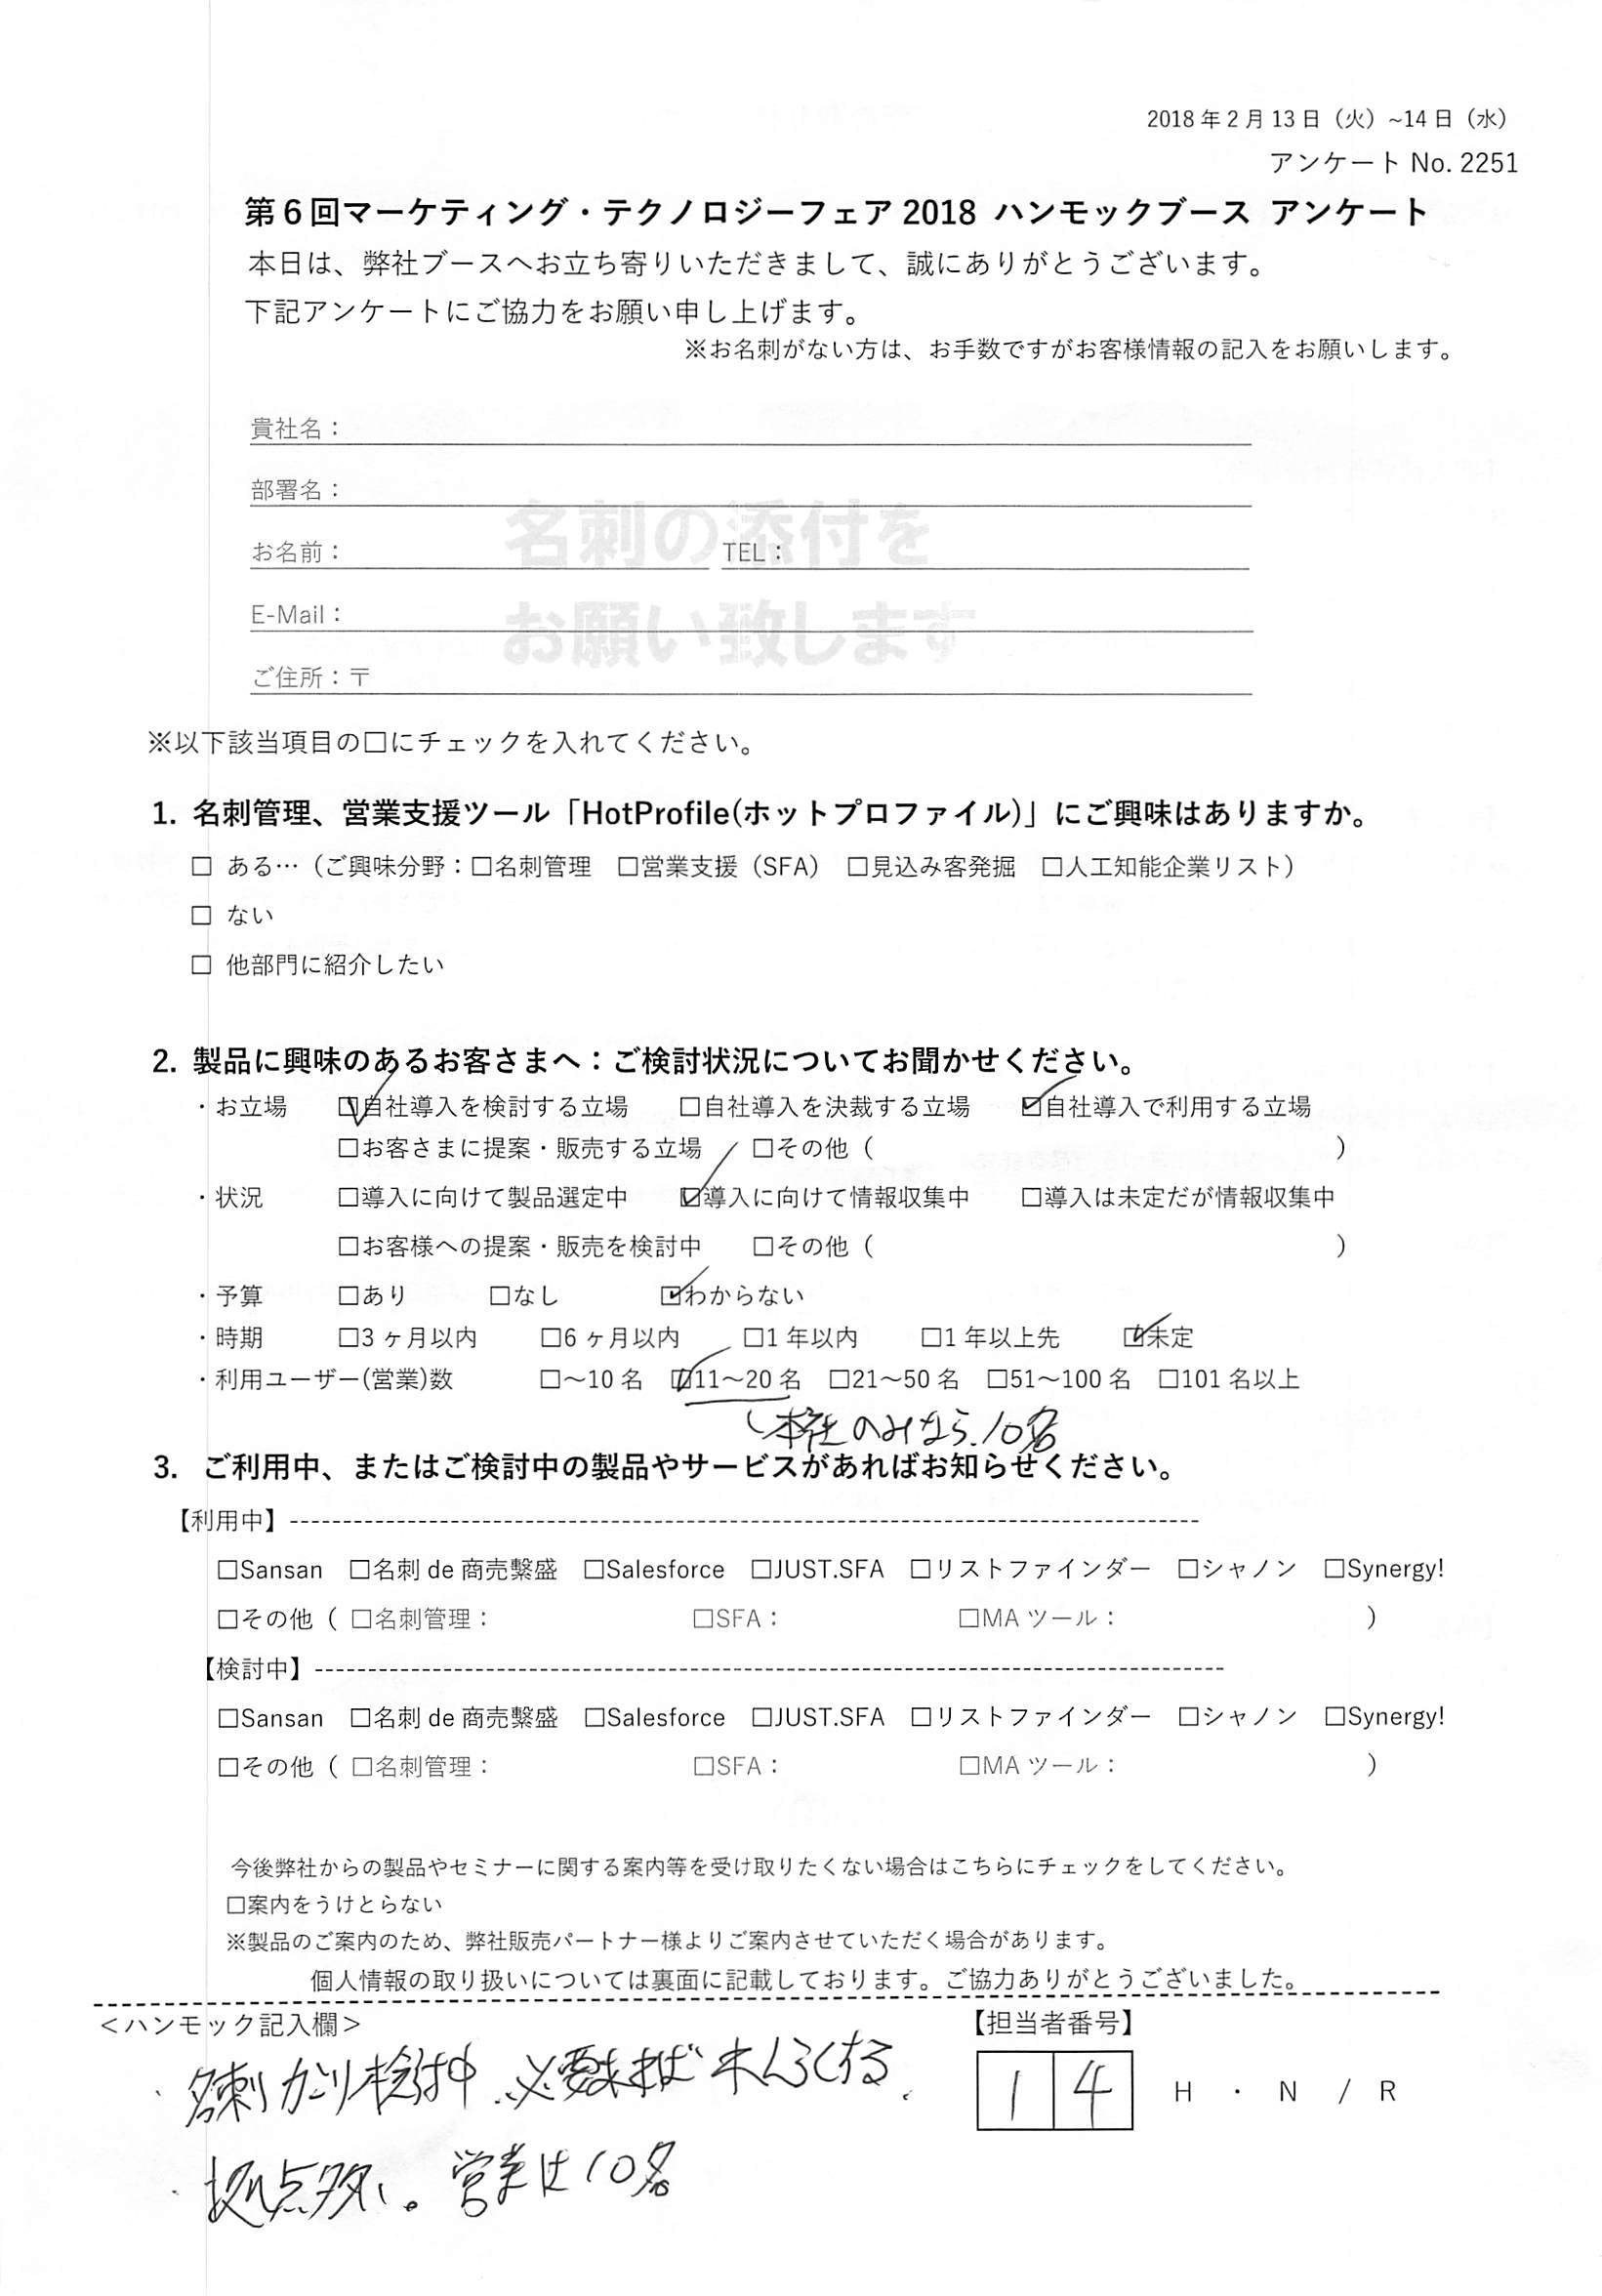 2018年2月13日（火）~14日（水）
アンケート No. 2251
第6回マーケティング・テクノロジーフェア 2018 ハンモックブース アンケート
本日は、弊社ブースへお立ち寄りいただきまして、誠にありがとうございます。
下記アンケートにご協力をお願い申し上げます。
※お名刺がない方は、お手数ですがお客様情報の記入をお願いします。
貴社名：
部署名：
名刺の添付を
お名前： TEL：
E-Mail：
お願い致します
ご住所：〒
※以下該当項目の□にチェックを入れてください。
1. 名刺管理、営業支援ツール「HotProfile(ホットプロファイル)」にご興味はありますか。
□ ある…（ご興味分野：□名刺管理 □営業支援（SFA） □見込み客発掘 □人工知能企業リスト）
□ ない
□ 他部門に紹介したい
2. 製品に興味のあるお客さまへ：ご検討状況についてお聞かせください。
・お立場 ☑自社導入を検討する立場 □自社導入を決裁する立場 ☑自社導入で利用する立場
□お客さまに提案・販売する立場 □その他（ ）
・状況 □導入に向けて製品選定中 ☑導入に向けて情報収集中 □導入は未定だが情報収集中
□お客様への提案・販売を検討中 □その他（ ）
・予算 □あり □なし ☑わからない
・時期 □3ヶ月以内 □6ヶ月以内 □1年以内 □1年以上先 ☑未定
・利用ユーザー(営業)数 □～10名 ☑11～20名 □21～50名 □51～100名 □101名以上
本社のみなら10名
3. ご利用中、またはご検討中の製品やサービスがあればお知らせください。
【利用中】
□Sansan □名刺 de 商売繫盛 □Salesforce □JUST.SFA □リストファインダー □シャノン □Synergy!
□その他（ □名刺管理： □SFA： □MAツール： ）
【検討中】
□Sansan □名刺 de 商売繫盛 □Salesforce □JUST.SFA □リストファインダー □シャノン □Synergy!
□その他（ □名刺管理： □SFA： □MAツール： ）
今後弊社からの製品やセミナーに関する案内等を受け取りたくない場合はこちらにチェックをしてください。
□案内をうけとらない
※製品のご案内のため、弊社販売パートナー様よりご案内させていただく場合があります。
個人情報の取り扱いについては裏面に記載しております。ご協力ありがとうございました。
＜ハンモック記入欄＞ 【担当者番号】
・名刺カンリ検討中 14 H ・ N / R
・拠点多い。営業は10名